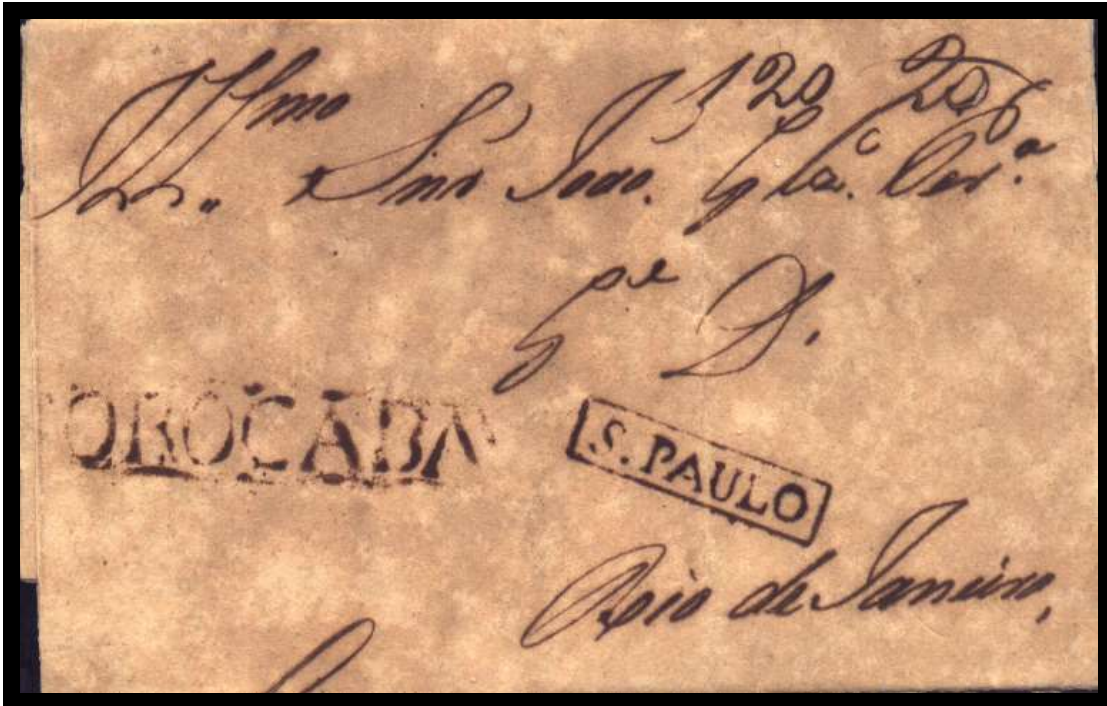 Illmo 120
Snr. Snr João. Per.ª
G.e D.
OROCABA
S. PAULO
Rio de Janeiro,